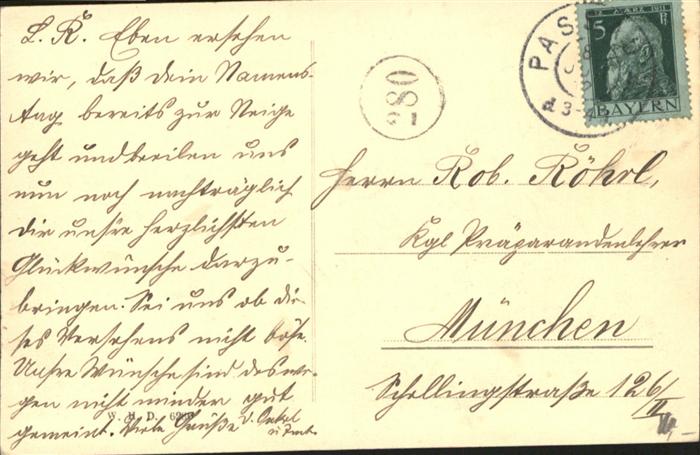 L. R. Eben ersehen
wir, daß dein Namens-
tag bereits zur Neige
geht und beeilen uns
nun noch nachträglich
dir unsre herzlichsten
Glückwünsche darzu-
bringen. Sei uns ob die-
ses Versehens nicht böse.
Unsre Wünsche sind deswe-
gen nicht minder gut
gemeint. Viele Grüße v. Onkel
W. H. D.
280
PAS
12. MÄRZ 1911
5 Pf
BAYERN
Herrn Rob. Röhrl,
Kgl Präparandenlehrer
München
Schellingstraße 126/
II